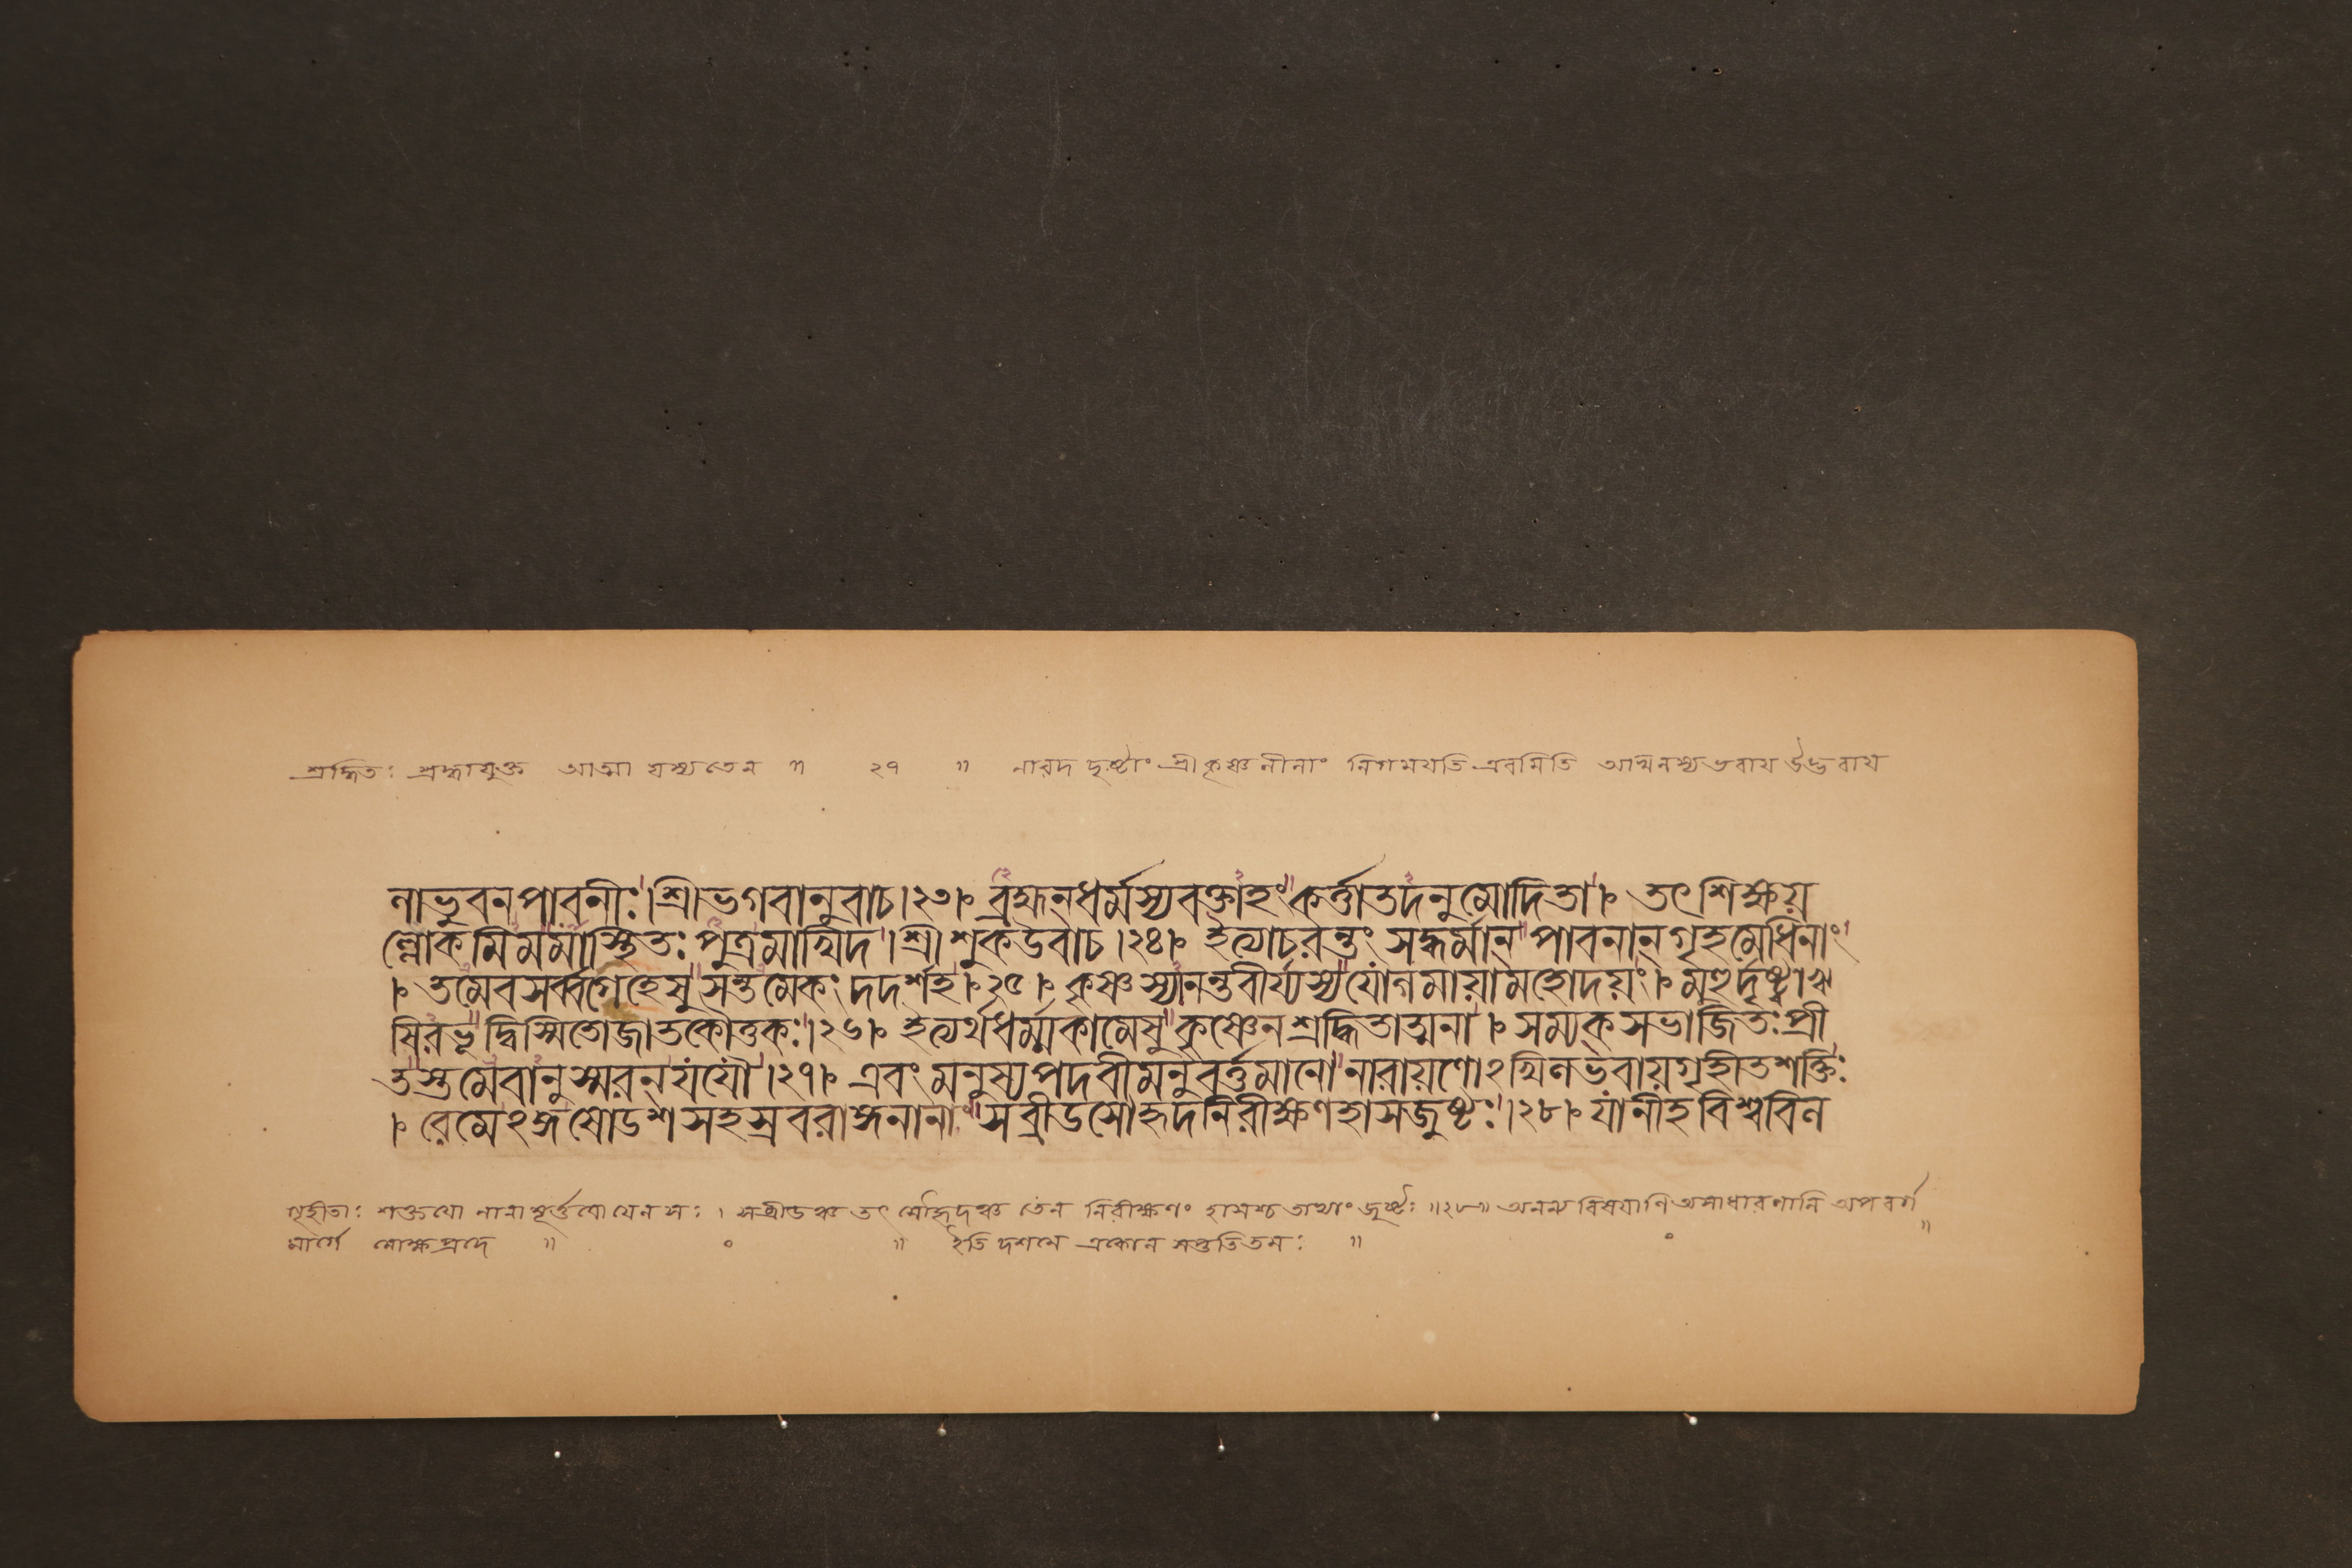 শ্রদ্ধিতঃ শ্রদ্ধাযুক্ত আত্মা যস্য তেন ॥ ২৭ ॥ নারদ দৃষ্টাং শ্রীকৃষ্ণলীলাং নিগময়তি এবমিতি আত্মনস্য ভবায় উদ্ভবায়
নাভুবনপাবনীঃ।শ্রীভগবানুবাচ।২৩। ব্রহ্মন্ধর্ম্মস্যবক্তাহং কর্ত্তাতদনুমোদিতা। তৎ শিক্ষয়
ল্লোকমিমমাস্থিতঃ পুত্রমাখিদ।শ্রীশুকউবাচ।২৪। ইত্যাচরন্তং সদ্ধর্মান্ পাবনান্গৃহমেধিনাং
। তমেবসর্ব্বগেহেষু সন্তমেকং দদর্শহ।২৫। কৃষ্ণস্যানন্তবীর্য্যস্যযোগমায়ামহোদয়ং। মুহুর্দৃষ্ট্বাঋ
ষিরভূদ্বিস্মিতোজাতকৌতুকঃ।২৬। ইত্যর্থধর্ম্মকামেষু কৃষ্ণেনশ্রদ্ধিতাত্মনা। সম্যক্সভাজিতঃপ্রী
তস্তমেবানুস্মরন্যযৌ।২৭। এবং মনুষ্যপদবীমনুবর্ত্তমানো নারায়ণোঽখিলভবায়গৃহীতশক্তিঃ
। রেমেঽঙ্গষোডশসহস্রবরাঙ্গনানাং সব্রীডসৌহৃদনিরীক্ষণহাসজুষ্টঃ।২৮। যানীহবিশ্ববিল
গৃহীতাঃ শক্তয়ো নানামূর্ত্তয়ো যেন সঃ। সব্রীডঞ্চ তৎ সৌহৃদঞ্চ তেন নিরীক্ষণং হাসশ্চ তাভ্যাং জুষ্টঃ ॥২৮॥ অনন্য বিষয়াণি অসাধারণানি অপবর্গ
মার্গে মোক্ষপ্রদে ॥ ০ ॥ ইতি দশমে একোন সপ্ততিতমঃ ॥ ০ ॥